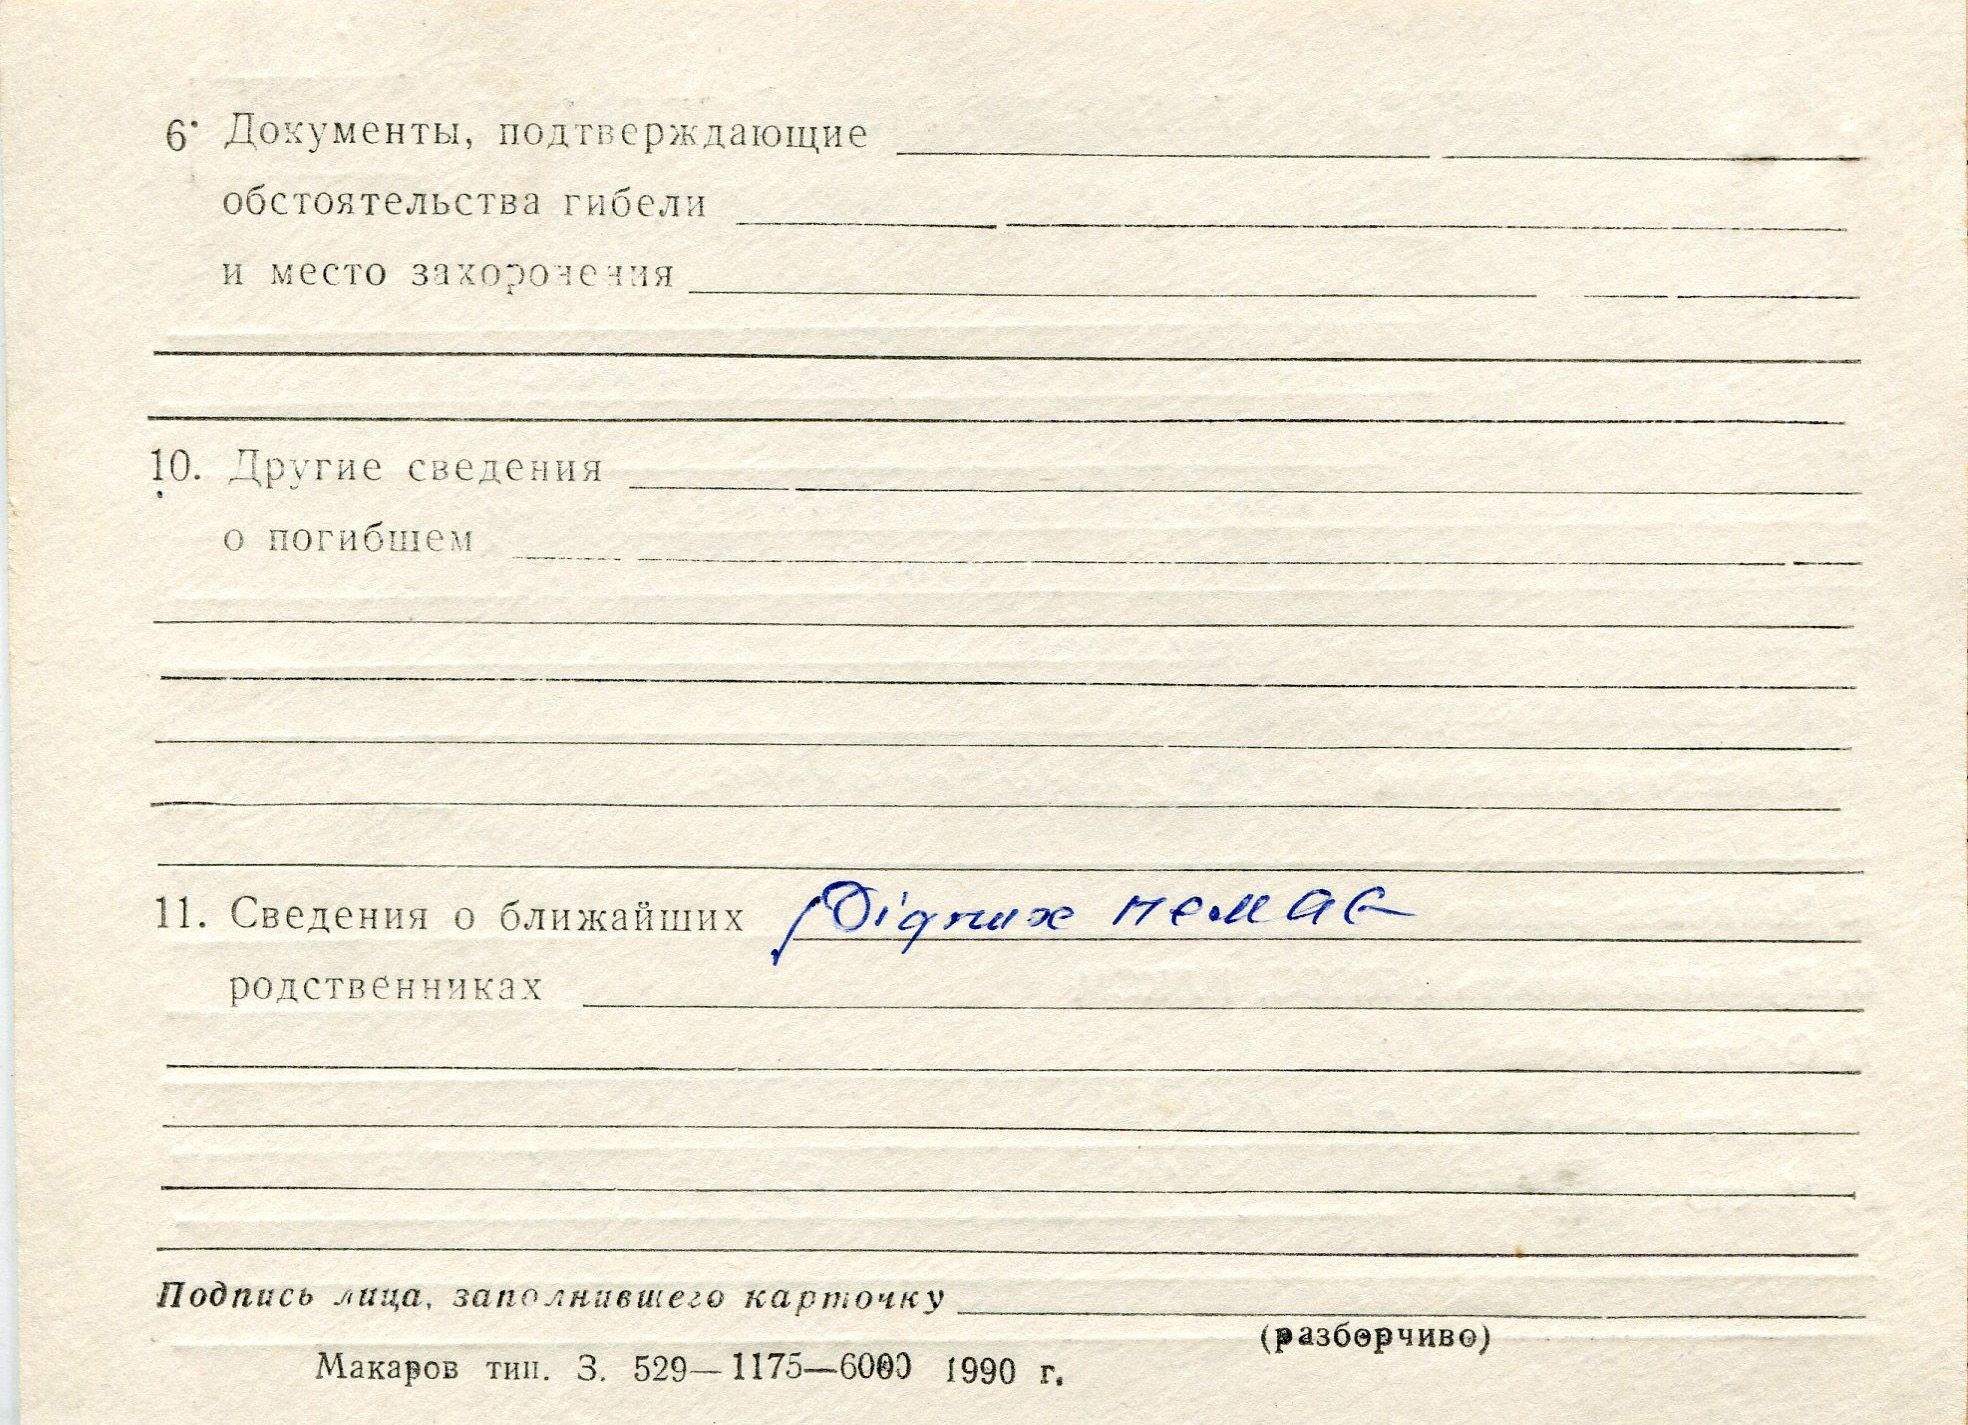 6. Документы, подтверждающие
обстоятельства гибели
и место захоронения
10. Другие сведения
о погибшем
11. Сведения о ближайших Рідних немає
родственниках
Подпись лица, заполнившего карточку
(разборчиво)
Макаров тип. З. 529—1175—6000 1990 г.